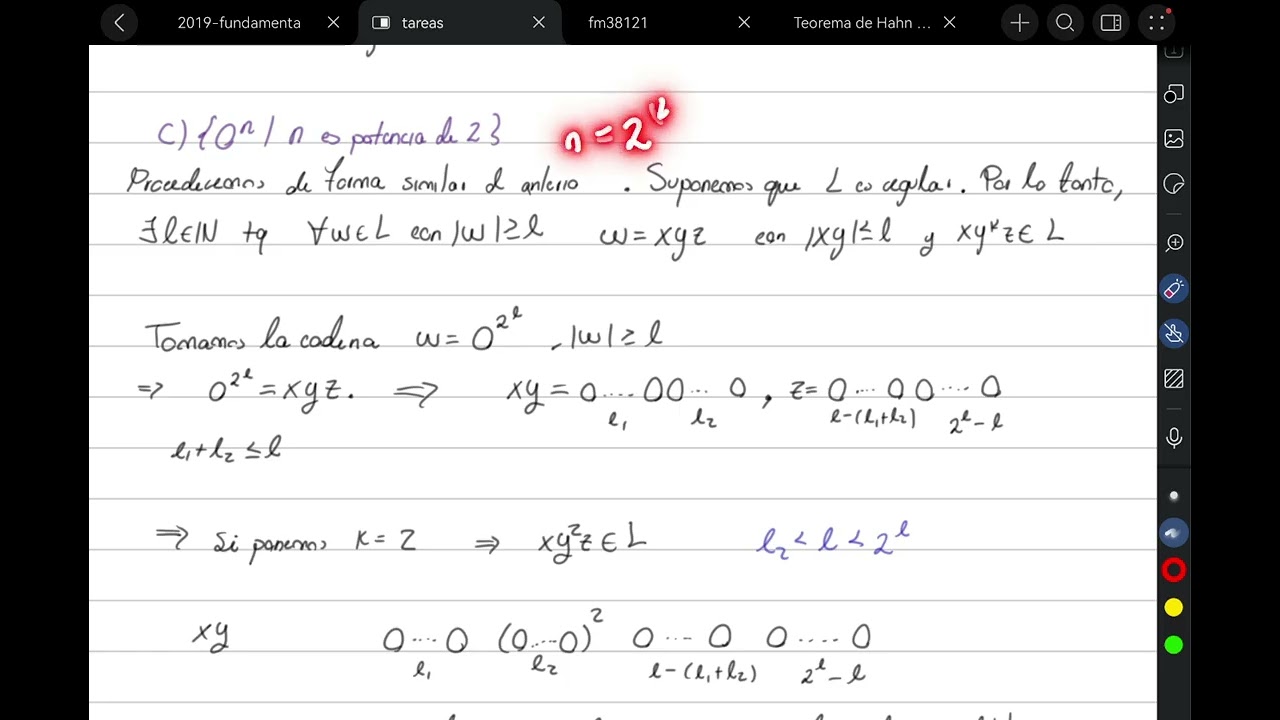 2019-fundamenta
tareas
fm38121
Teorema de Hahn ...
C) {0ⁿ / n es potencia de 2} n = 2ᵏ
Procedemos de forma similar al anterio . Suponemos que L es regular. Por lo tanto,
∃ l∈ℕ tq ∀w∈L con |w|≥l w = xyz con |xy|≤l y xyᵏz∈ L
Tomamos la cadena w = 0^{2^l} . |w| ≥ l
=> 0^{2^l} = xyz. => xy = 0....00... 0 , z= 0 ... 0 0 .... 0
l₁ l₂ l-(l₁+l₂) 2^l - l
l₁+l₂ ≤ l
=> Si ponemos k = 2 => xy²z ∈ L l₂ < l < 2^l
xy 0 ... 0 (0...0)² 0 ... 0 0 .... 0
l₁ l₂ l-(l₁+l₂) 2^l - l